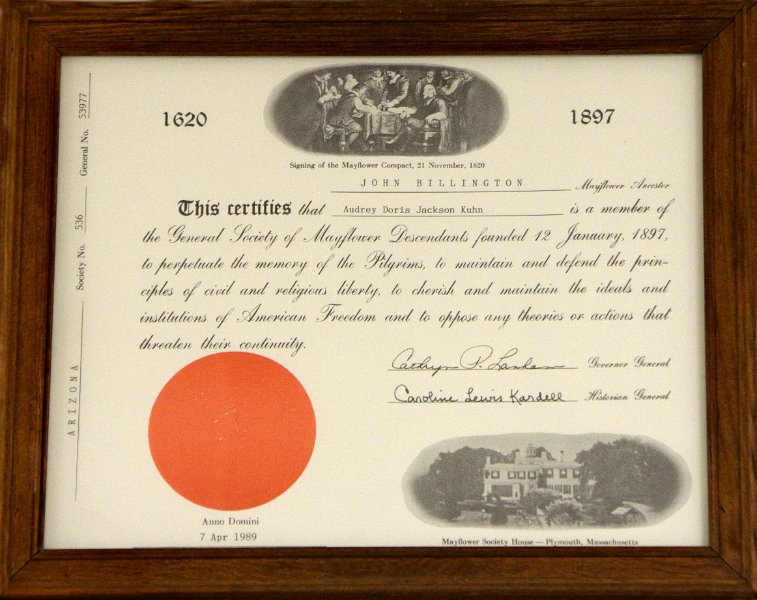 1620
1897
Signing of the Mayflower Compact, 21 November, 1620
JOHN BILLINGTON Mayflower Ancestor
This certifies that Audrey Doris Jackson Kuhn is a member of
the General Society of Mayflower Descendants founded 12 January, 1897,
to perpetuate the memory of the Pilgrims, to maintain and defend the prin-
ciples of civil and religious liberty, to cherish and maintain the ideals and
institutions of American Freedom and to oppose any theories or actions that
threaten their continuity.
Cathryn P. Governor General
Caroline Lewis Kardell Historian General
Anno Domini
7 Apr 1989
Mayflower Society House — Plymouth, Massachusetts
ARIZONA Society No. 536 General No. 53977